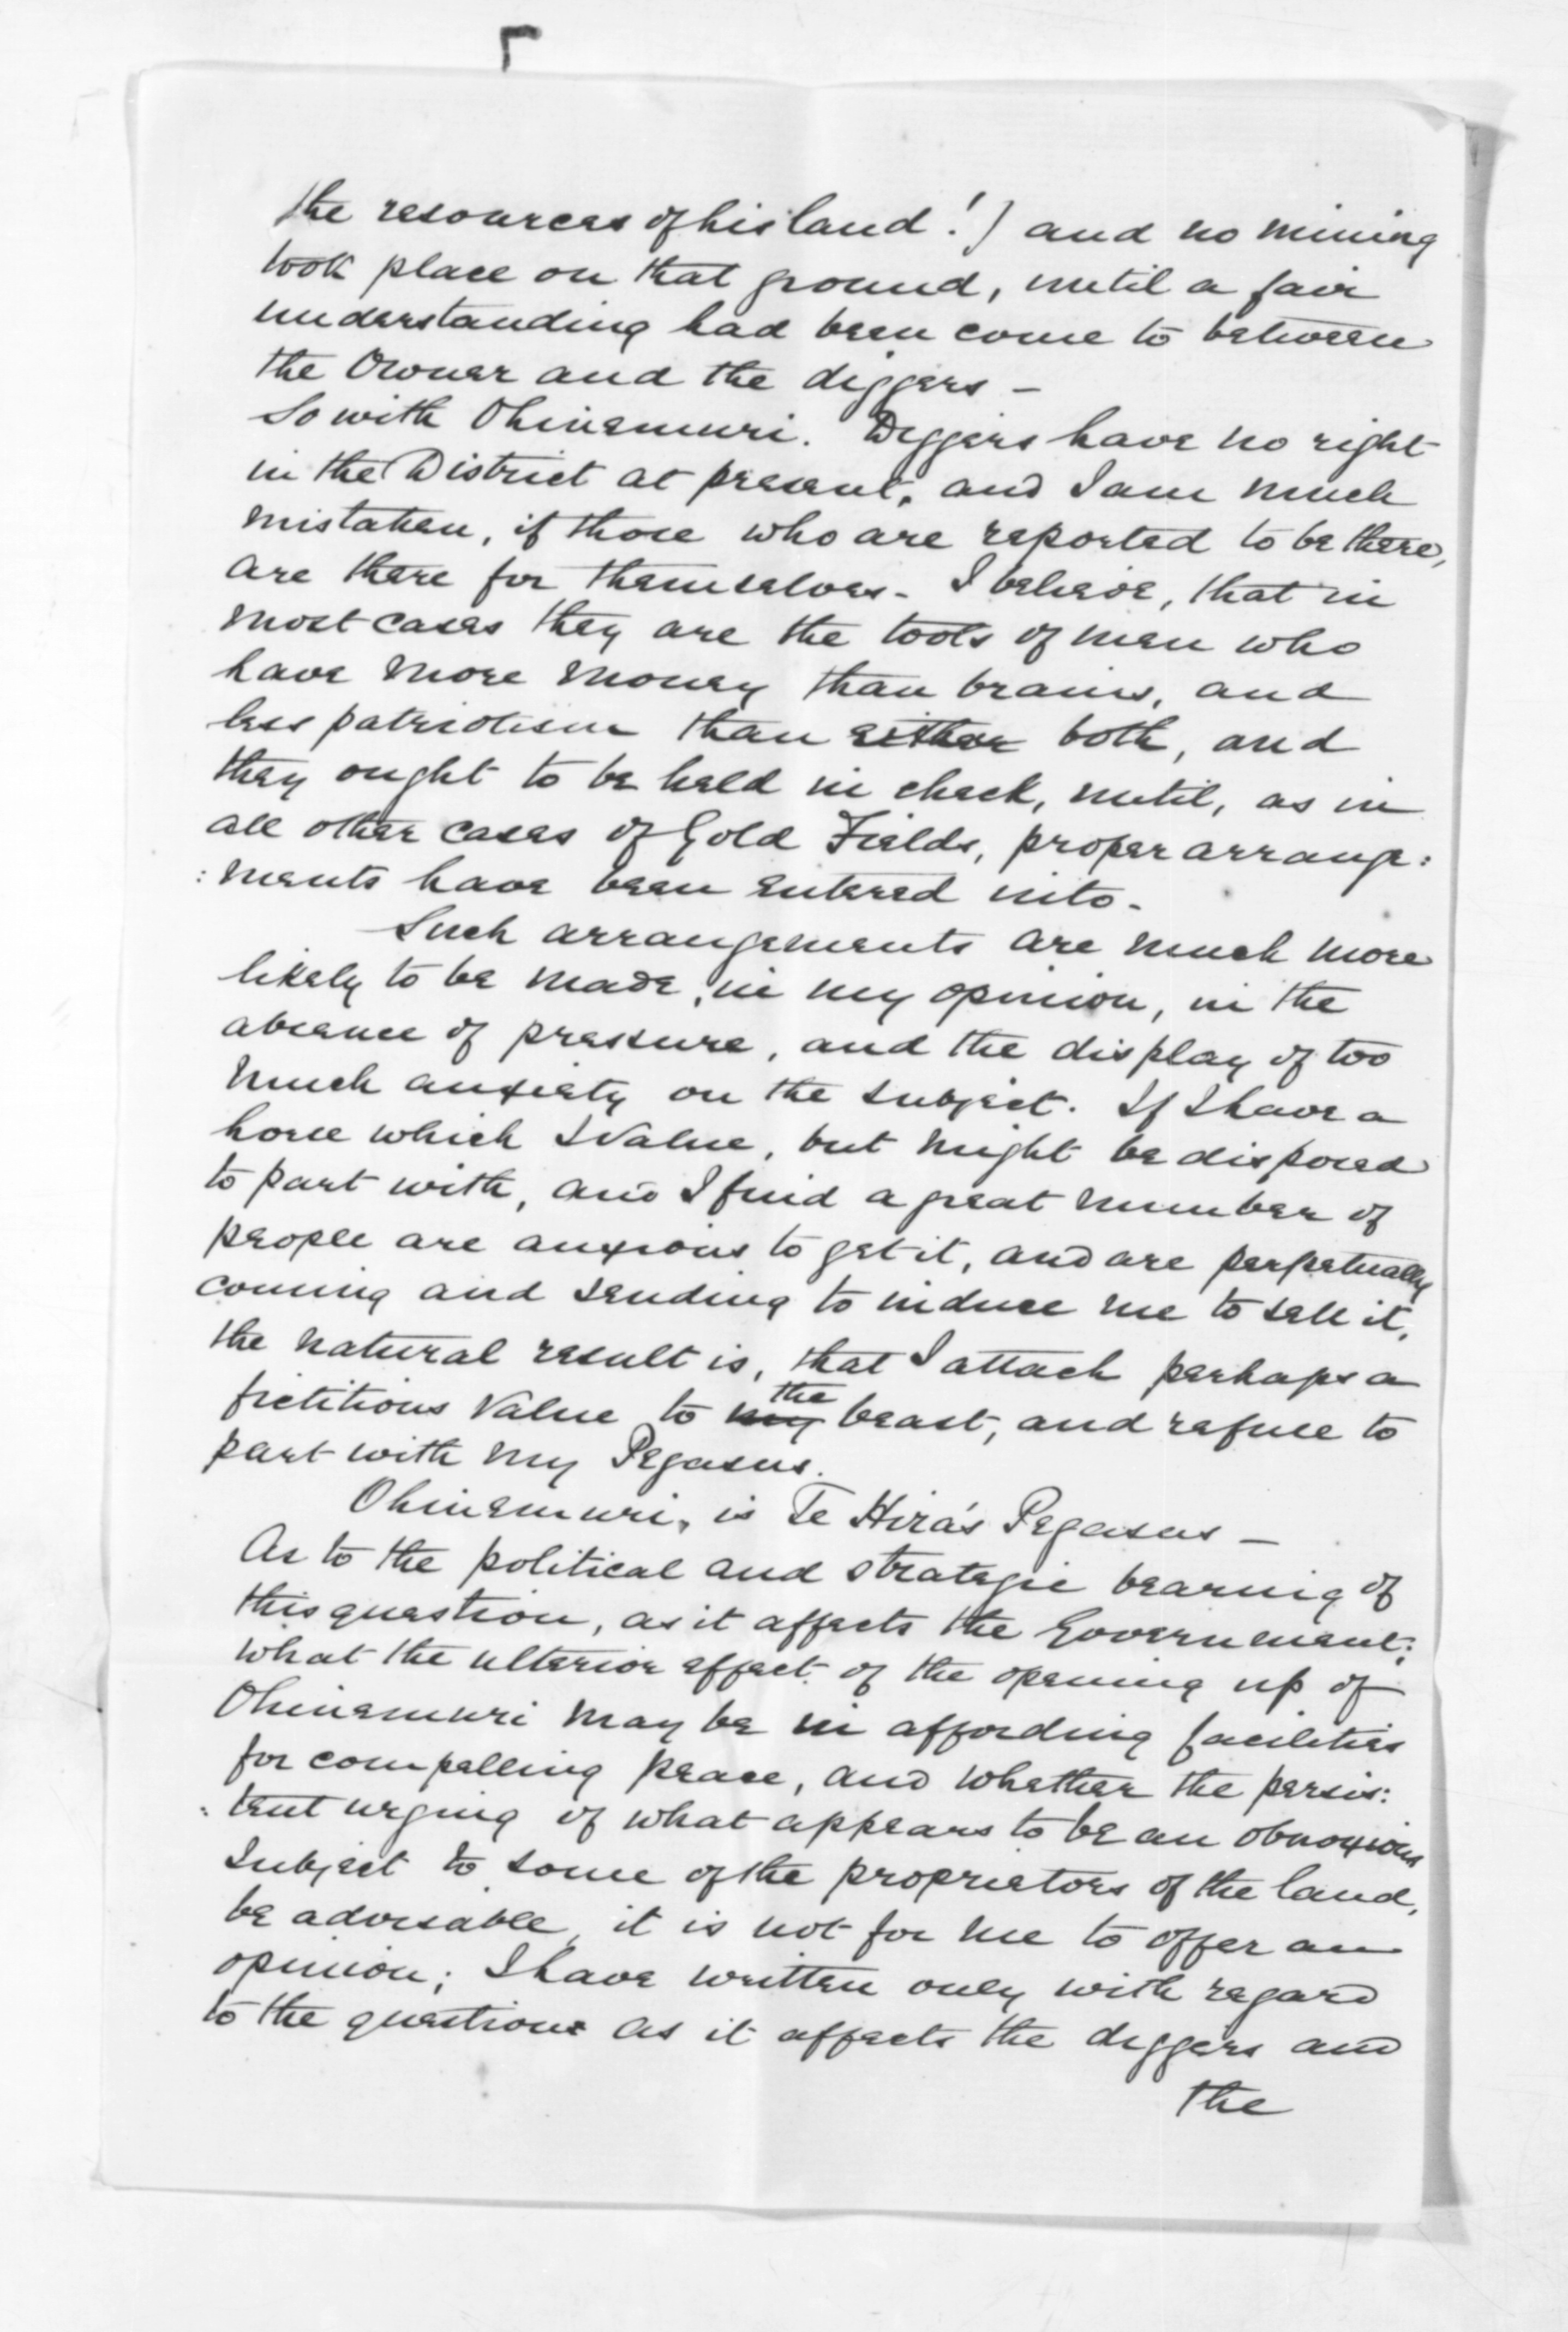 the resources of his land!) and no mining
took place on that ground, until a fair
understanding had been come to between
the Owner and the diggers -
So with Ohinemuri. Diggers have no right
in the District at present, and I am much
mistaken, if those who are reported to be there,
are there for themselves - I believe, that in
most cases they are the tools of men who
have more money than brains, and
less patriotism than either both, and
they ought to be held in check, until, as in
all other cases of Gold Fields, proper arrange:
:ments have been entered into -
Such arrangements are much more
likely to be made, in my opinion, in the
absence of pressure, and the display of too
much anxiety on the subject. If I have a
horse which I value, but might be disposed
to part with, and I find a great number of
people are anxious to get it, and are perpetually
coming and sending to induce me to sell it,
the natural result is, that I attach perhaps a
fictitious value to my the beast, and refuse to
part with my Pegasus.
Ohinemuri, is Te Hira's Pegasus -
As to the political and strategic bearing of
this question, as it affects the Government;
what the ulterior effect of the opening up of
Ohinemuri may be in affording facilities
for compelling peace, and whether the persis:
:tent urging of what appears to be an obnoxious
subject to some of the proprietors of the land,
be advisable, it is not for me to offer an
opinion; I have written only with regard
to the question as it affects the diggers and
the